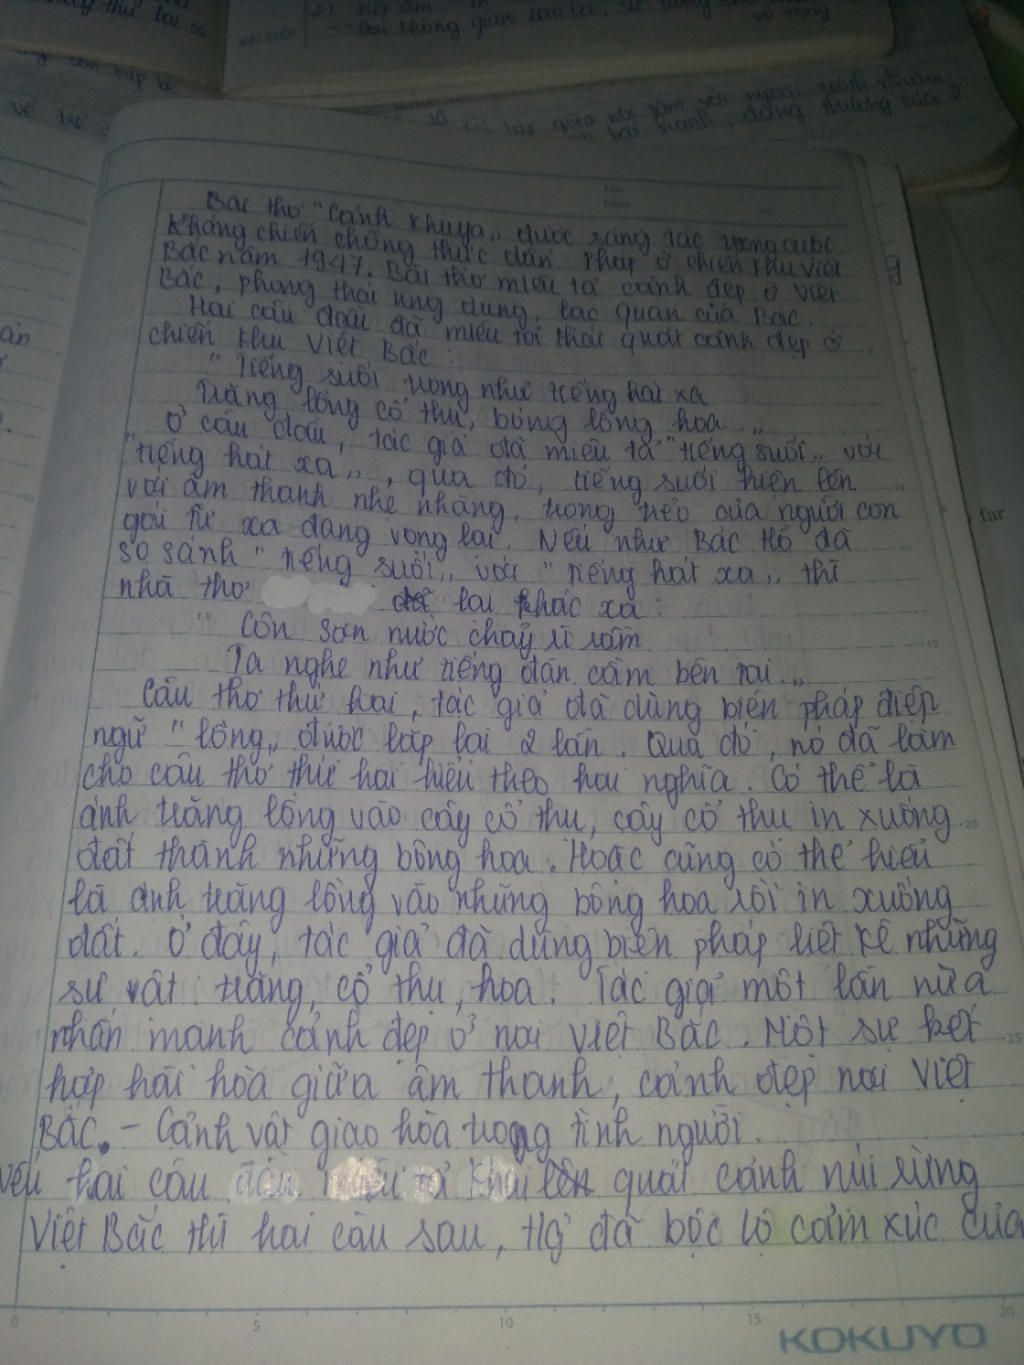 Bác thơ "Cảnh khuya" được sáng tác trong cuộc
kháng chiến chống thực dân Pháp ở chiến khu Việt
Bắc năm 1947. Bài thơ miêu tả cảnh đẹp ở Việt
Bắc, phong thái ung dung, lạc quan của Bác.
Hai câu đầu đã miêu tả khái quát cảnh đẹp ở
chiến khu Việt Bắc :
" Tiếng suối trong như tiếng hát xa
Trăng lồng cổ thụ, bóng lồng hoa . "
Ở câu đầu, tác giả đã miêu tả "tiếng suối" với
"tiếng hát xa", qua đó, tiếng suối hiện lên
với âm thanh nhẹ nhàng, trong trẻo của người con
gái từ xa đang vọng lại. Nếu như Bác Hồ đã
so sánh "tiếng suối" với "tiếng hát xa" thì
nhà thơ lại khác xa :
" Côn Sơn nước chảy rì rầm
Ta nghe như tiếng đàn cầm bên tai . "
Câu thơ thứ hai, tác giả đã dùng biện pháp điệp
ngữ "lồng" được lặp lại 2 lần. Qua đó, nó đã làm
cho câu thơ thứ hai hiểu theo hai nghĩa. Có thể là
ánh trăng lồng vào cây cổ thụ, cây cổ thụ in xuống
đất thành những bông hoa. Hoặc cũng có thể hiểu
là ánh trăng lồng vào những bông hoa rồi in xuống
đất. Ở đây, tác giả đã dùng biện pháp liệt kê những
sự vật: trăng, cổ thụ, hoa. Tác giả một lần nữa
nhấn mạnh cảnh đẹp ở nơi Việt Bắc. Một sự kết
hợp hài hòa giữa âm thanh, cảnh đẹp nơi Việt
Bắc. - Cảnh vật giao hòa trong tình người.
Nếu hai câu đầu miêu tả khái quát cảnh núi rừng
Việt Bắc thì hai câu sau, tg đã bộc lộ cảm xúc của
0 5 10 15 20
KOKUYO